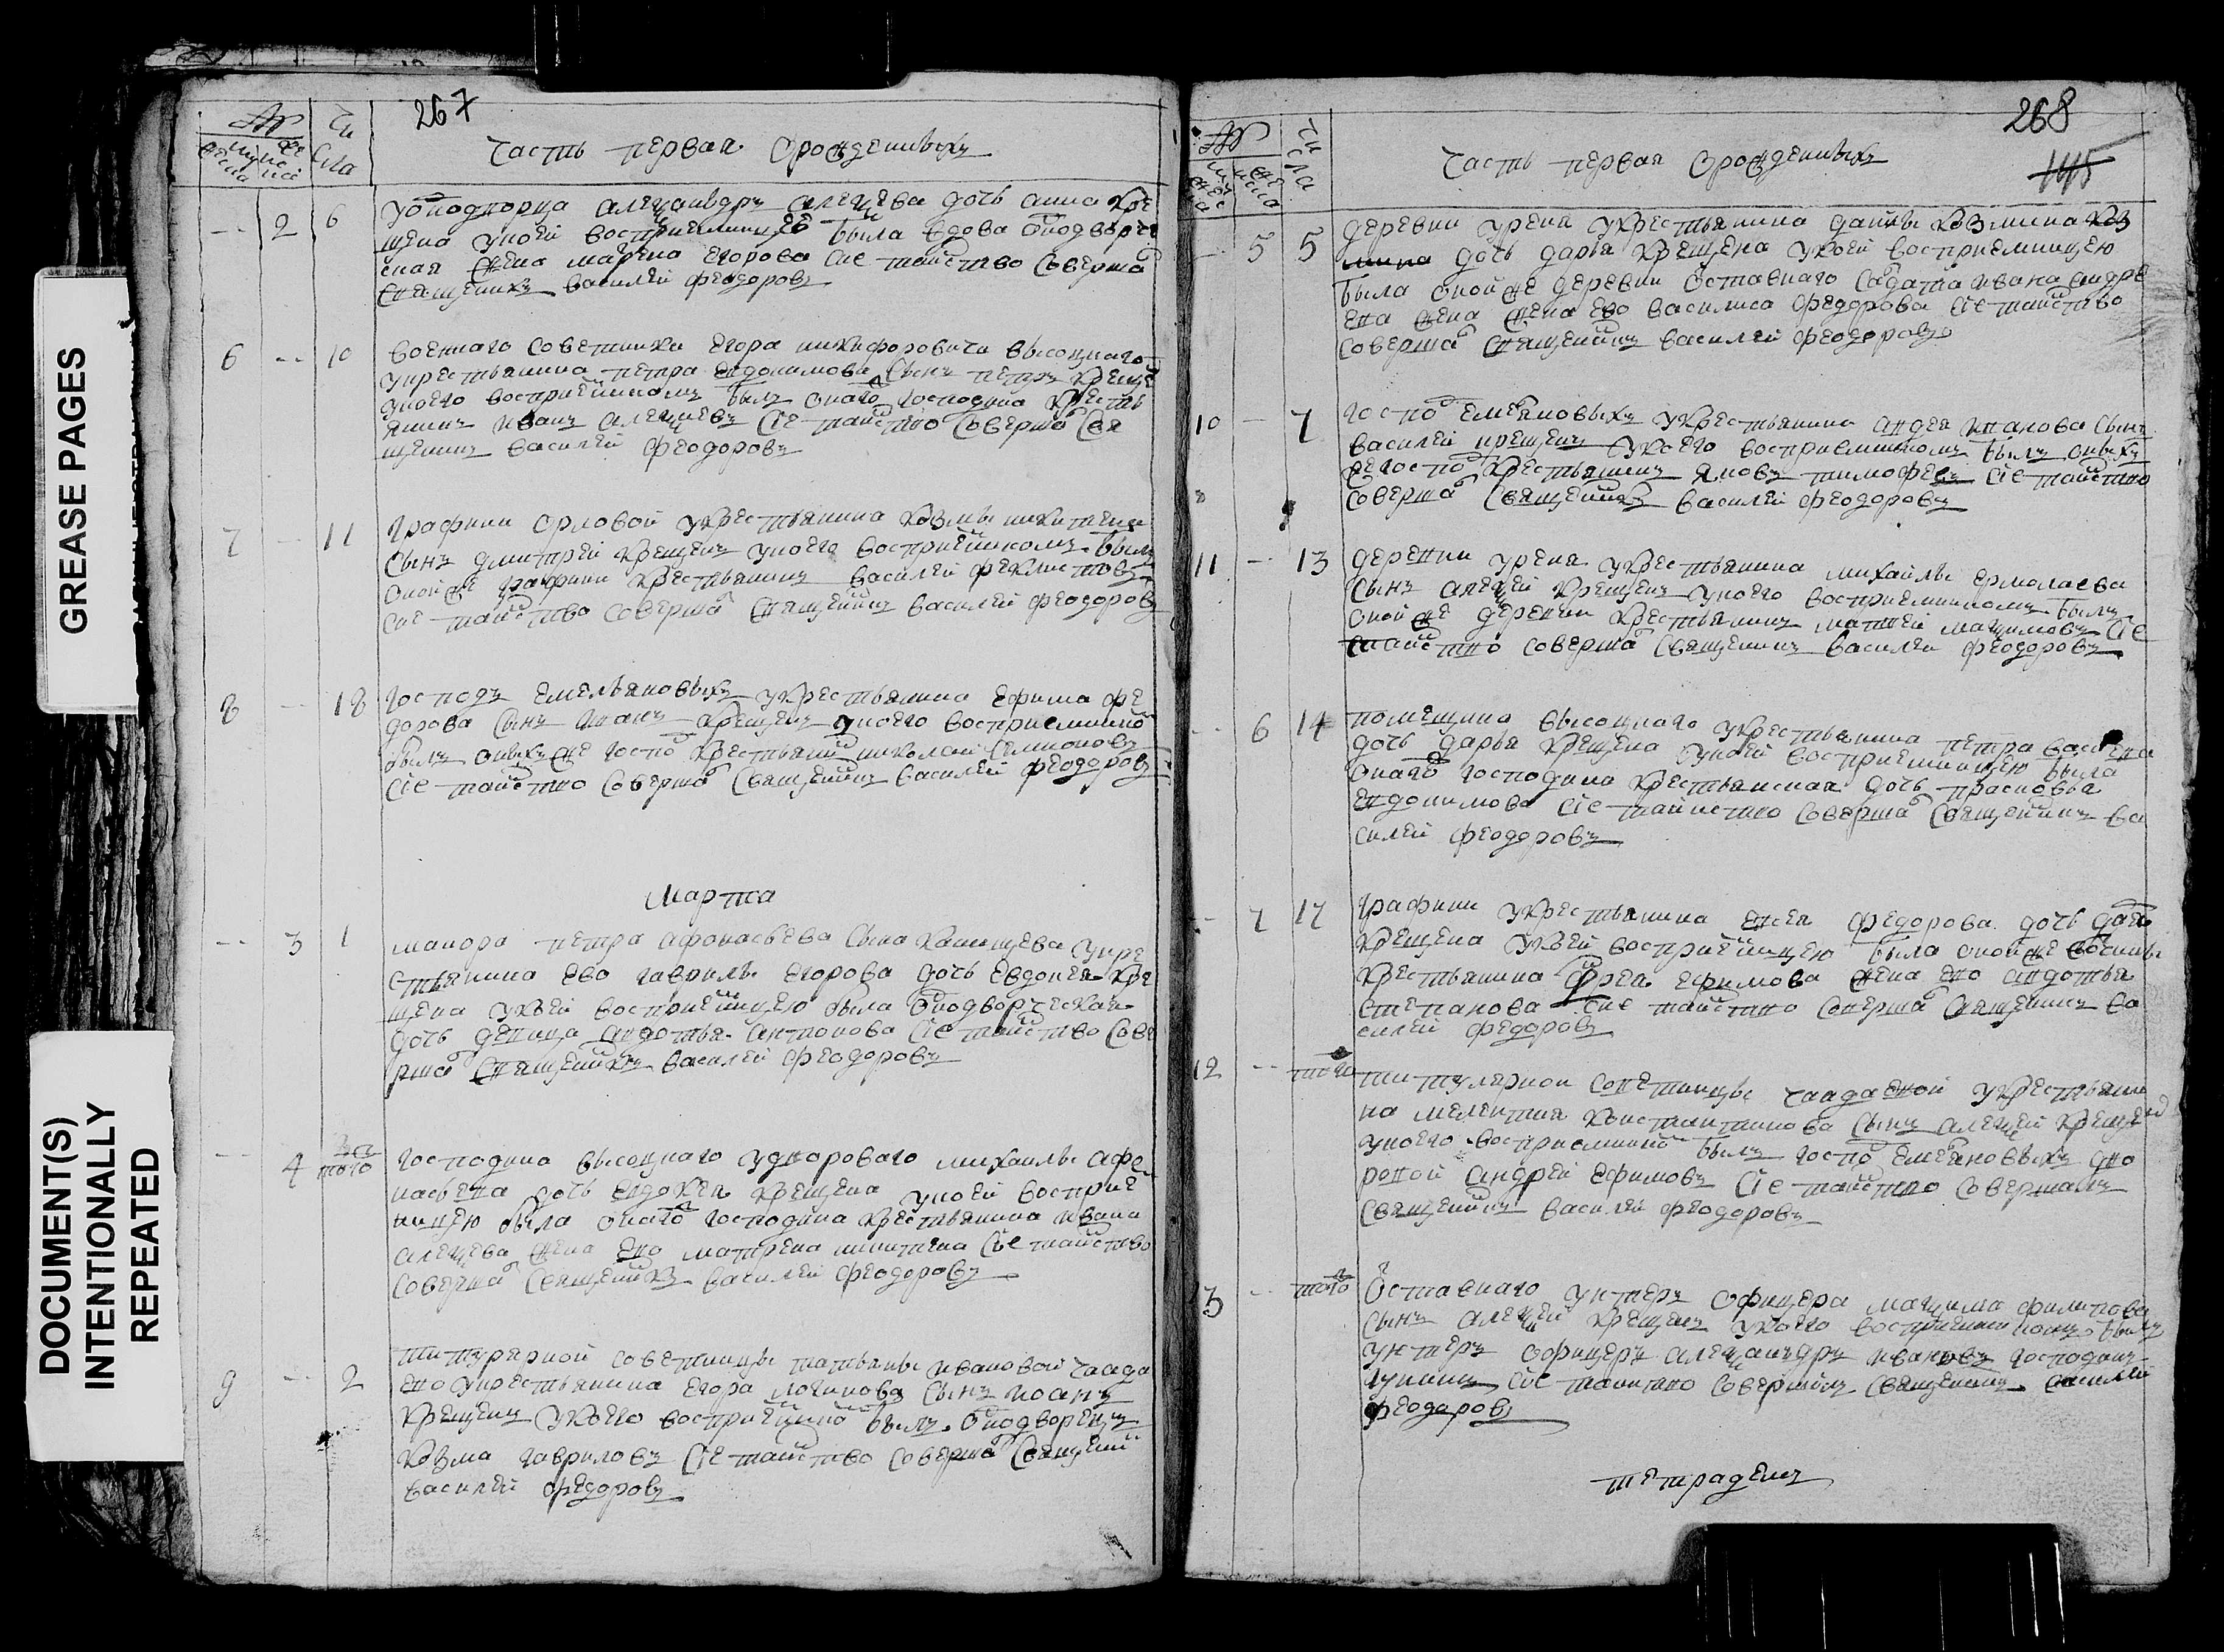 GREASE PAGES
DOCUMENT(S)
INTENTIONALLY
REPEATED
267
№
чи
сла
часть первая о рожденныхъ
2 6
у однодворца алеѯандръ алеѯева дочь анна кре
щена у коей восприемницею была вдова однодворче
ская жена марина егорова сие таинство соверша
священникъ василей феодоровъ
6 10
военнаго советника егора никифоровича высоцкаго
у крестьянина петра евдокимова сынъ петръ креще
у коего восприемникомъ былъ онаго господина кресть
янинъ иванъ алеѯиевъ сие таинство соверша свя
щенникъ василей феодоровъ
7 11
графини орловой у крестьянина козмы никитина
сынъ дмитрей крещенъ у коего восприемникомъ былъ
оной же графини крестьянинъ василей феклистовъ
сие таинство соверша священникъ василей феодоровъ
8 18
господъ емельяновыхъ у крестьянина ефима фе
дорова сынъ крещенъ у коего восприемнико
былъ оныхъ же госпо крестьянинъ николай симионовъ
сие таинство соверша священникъ василей феодоровъ
марта
3 1
маиора петра афонасьева сына у кре
стьянина ево гаврилы егорова дочь евдокея кре
щена у коей восприемницею была однодворческая
дочь девица авдотья антонова сие таинство сове
рша священникъ василей феодоровъ
4 того
господина высоцкаго у двороваго михаилы афо
насьева дочь евдокея крещена у коей восприе
ницею была онаго господина крестьянина ивана
алеѯева жена ево матрена никитина сие таинство
соверша священникъ василей феодоровъ
9 2
титулярной советницы татьяны ивановой чаада
ево у крестьянина егора логинова сынъ иоанъ
крещенъ у коего восприемнико былъ однодворецъ
козма гавриловъ сие таинство соверша священни
василей федоровъ
268
145
№
числа
часть первая о рожденныхъ
5 5
деревни урена у крестьянина данилы козмина коз
мина дочь дарья крещена у коей восприемницею
была оной же деревни оставнаго салдата ивана андре
ева жена жена ево василиса федорова сие таинство
соверша священникъ василей феодоровъ
10 7
госпо емеляновыхъ у крестьянина андея сынъ
василей крещенъ у коего восприемникомъ былъ оныхъ
же госпо крестьянинъ яковъ тимофеевъ сие таинство
соверша священникъ василей феодоровъ
11 13
деревни урена у крестьянина михайлы ермолаева
сынъ алеѯей крещенъ у коего восприемникомъ былъ
оной же деревни крестьянинъ матвей маѯимовъ сие
таинство соверша священникъ василей феодоровъ
6 14
помещика высоцкаго у крестьянина петра васильева
дочь дарья крещена у коей восприемницею была
онаго господина крестьянская дочь прасковья
евдокимова сие таинство соверша священникъ ва
силей феодоровъ
7 17
графини у крестьянина федорова дочь дарья
крещена у коей восприемницею была оной же
крестьянина ефимова жена ево авдотья
степанова сие таинство соверша священникъ ва
силей федоровъ
12 того
титулярной советницы чаадаевой у крестьяни
на мелентия константинова сынъ алеѯей крещенъ
у коего восприемнико былъ госпо емеляновыхъ дво
ровой андрей ефимовъ сие таинство совершалъ
священникъ василей феодоровъ
13 того
оставнаго унтеръ офицера маѯима филипова
сынъ алеѯей крещенъ у коего восприемникомъ былъ
унтеръ офицеръ алеѯандръ ивановъ господинъ
сие таинство совершилъ священникъ василей
феодоровъ